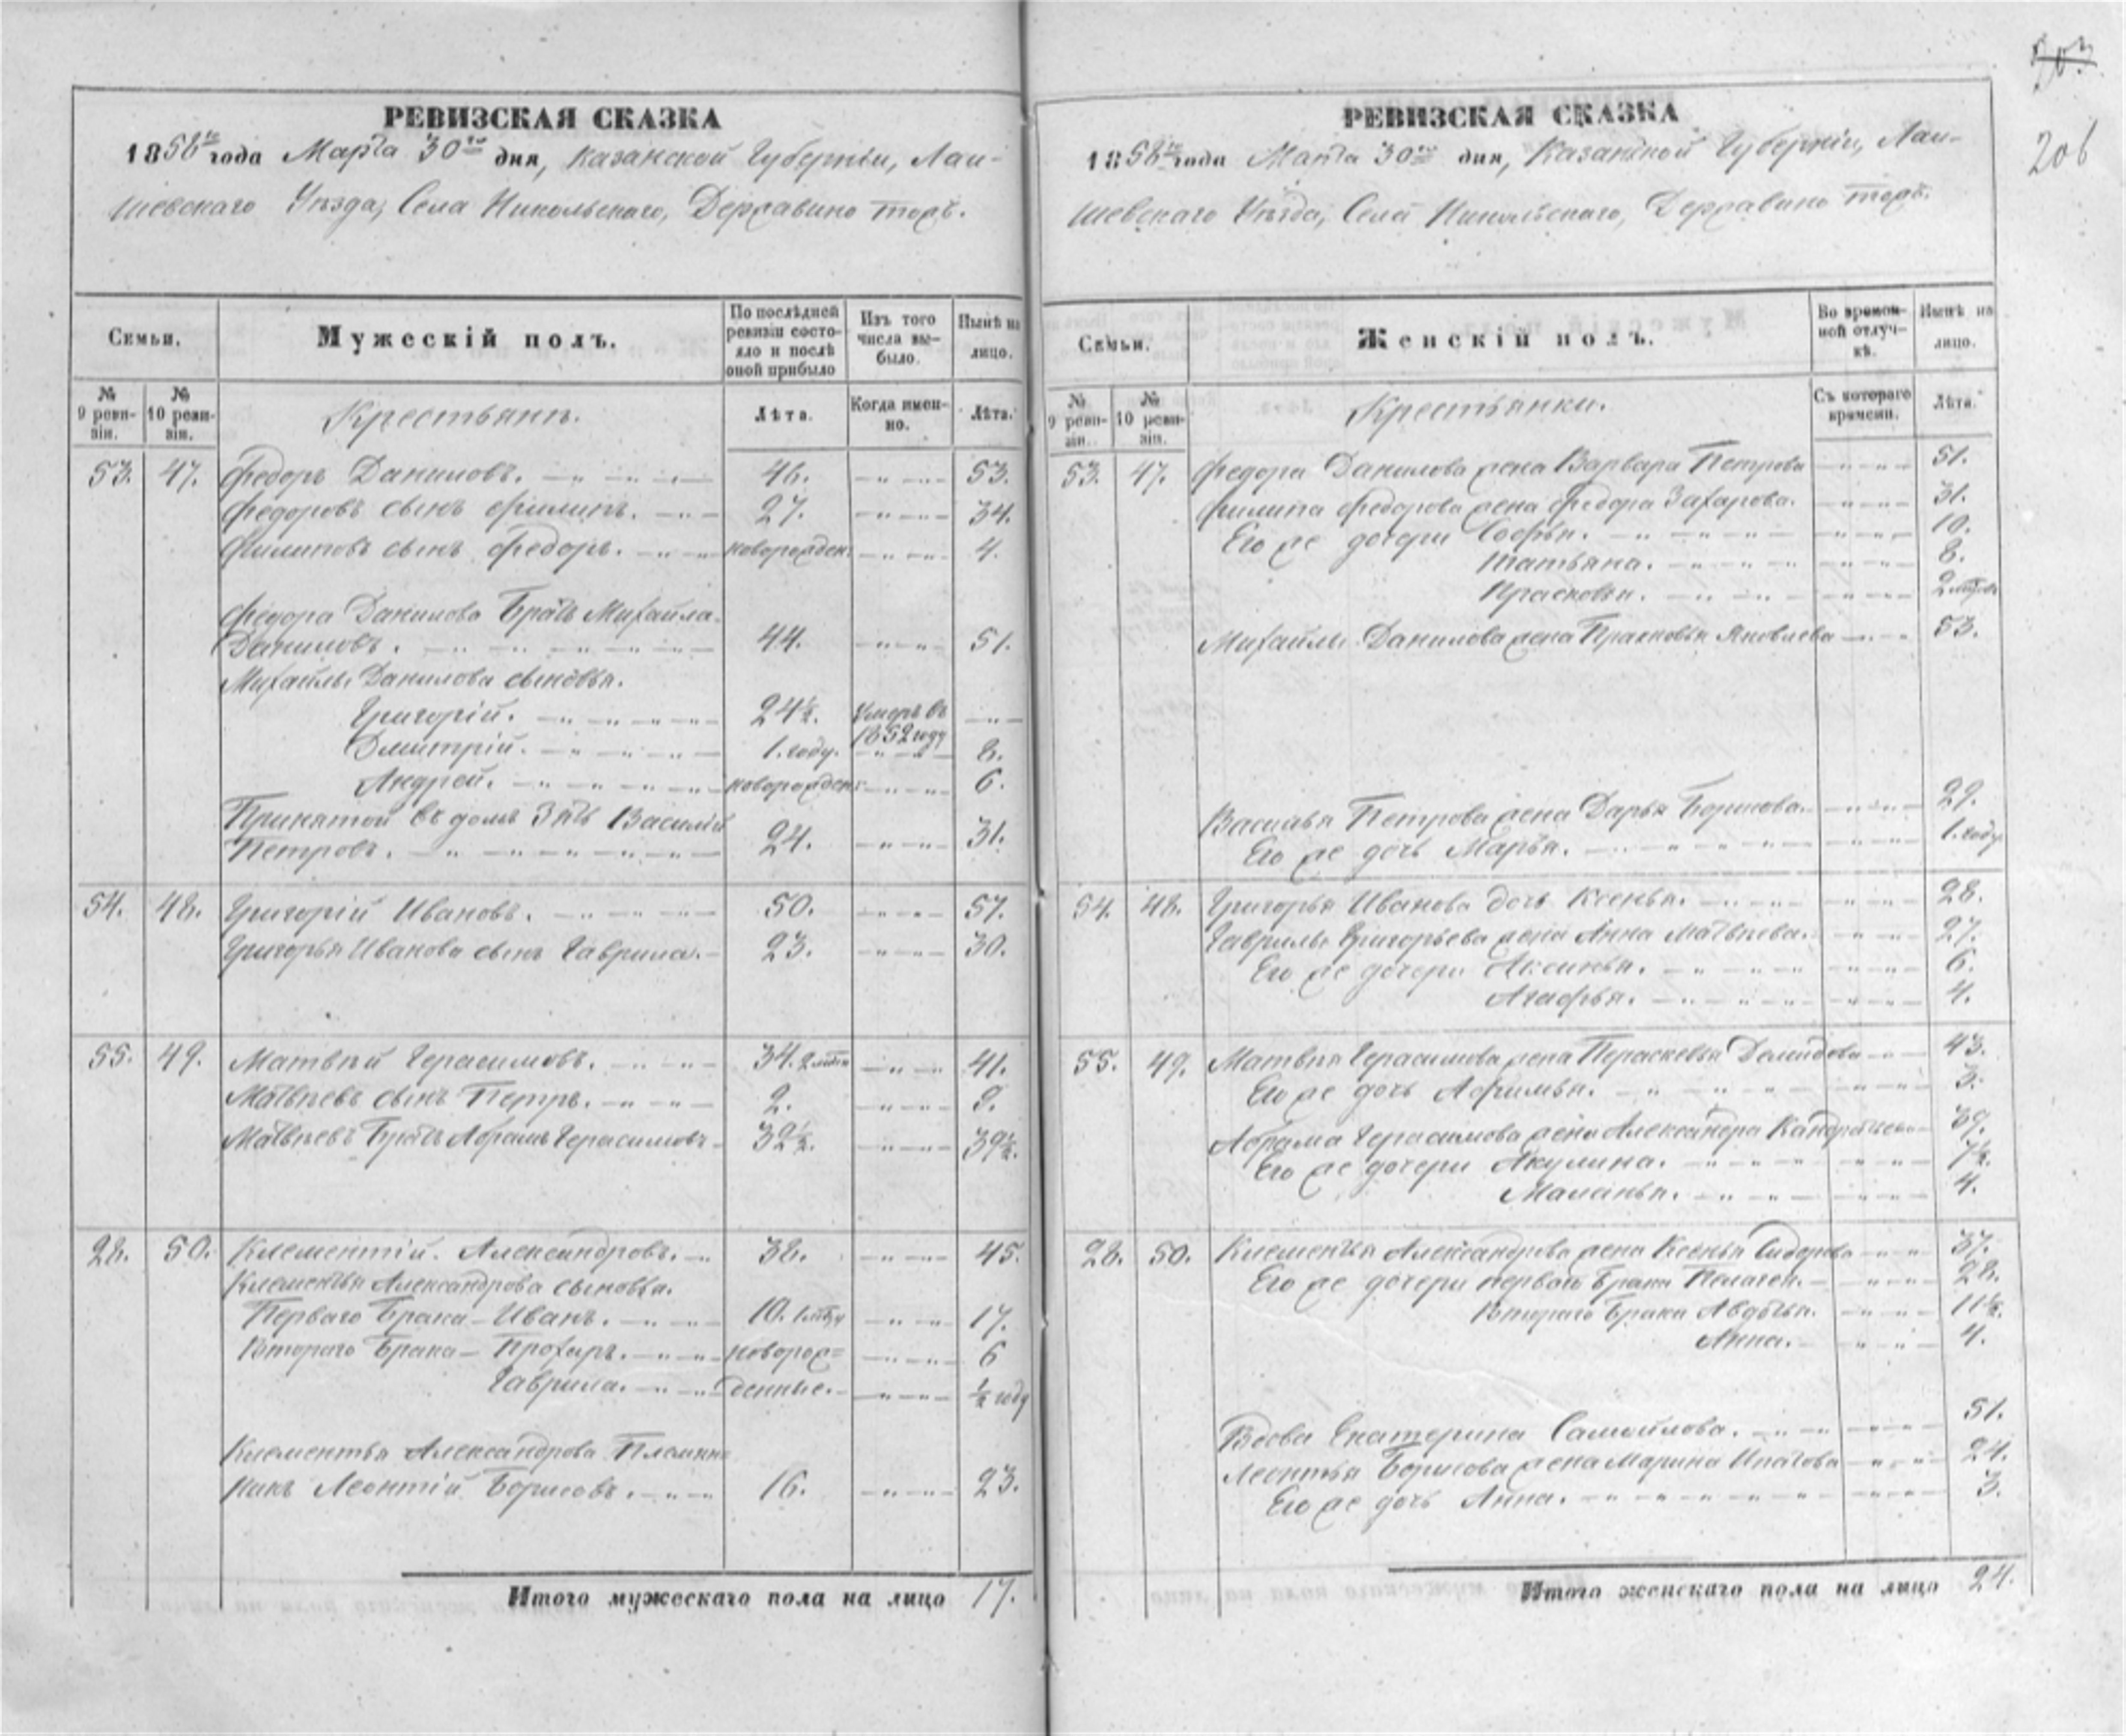 203
206
РЕВИЗСКАЯ СКАЗКА
1858го года Марта 30го дня, Казанской Губерніи, Лаи-
шевскаго Уѣзда, Села Никольскаго, Державино тожъ.
Семьи.
Мужескій полъ.
По послѣдней ревизіи состояло и послѣ оной прибыло
Изъ того числа выбыло.
Нынѣ на лицо.
№ 9 ревизіи.
№ 10 ревизіи.
Крестьянъ.
Лѣта.
Когда именно.
Лѣта.
53. 47. Федоръ Даниловъ. 46. 53.
Федоровъ сынъ Филипъ. 27. 34.
Филиповъ сынъ Федоръ. новорожден: 4.
Федора Данилова Братъ Михайла
Даниловъ. 44. 51.
Михайлы Данилова сыновья.
Григорій. 24½. Умеръ въ 1852 году
Дмитрій. 1. году. 8.
Андрей. новорожден: 6.
Принятой въ домъ Зять Василій
Петровъ. 24. 31.
54. 48. Григорій Ивановъ. 50. 57.
Григорья Иванова сынъ Гаврила. 23. 30.
55. 49. Матвѣй Герасимовъ. 34. 41.
Матвѣевъ сынъ Петръ. 2. 9.
Матвѣевъ Братъ Абрамъ Герасимовъ 32½. 39½.
28. 50. Клементій Александровъ. 38. 45.
Клементья Александрова сыновья.
Перваго Брака - Иванъ. 10. 17.
Втораго Брака - Прохоръ. новорож= 6
Гаврила. денные. ½ году
Клементья Александрова Племян-
никъ Леонтій Борисовъ. 16. 23.
Итого мужескаго пола на лицо 17.
РЕВИЗСКАЯ СКАЗКА
1858го года Марта 30го дня, Казанской Губерніи, Лаи-
шевскаго Уѣзда, Села Никольскаго, Державино тожъ.
Семьи.
Женскій полъ.
Во временной отлучкѣ.
Нынѣ на лицо.
№ 9 ревизіи.
№ 10 ревизіи.
Крестьянки.
Съ котораго времени.
Лѣта.
53. 47. Федора Данилова жена Варвара Петрова 51.
Филипа Федорова жена Федора Захарова. 31.
Его же дочери Софья. 10.
Татьяна. 8.
Прасковья. 2
Михайлы Данилова жена Прасковья Яковлева 53.
Василья Петрова жена Дарья Борисова. 29.
Его же дочь Марья. 1. году
54. 48. Григорья Иванова дочь Ксенья. 28.
Гаврилы Григорьева жена Анна Матвѣева. 27.
Его же дочери Аксинья. 6.
Агафья. 4.
55. 49. Матвѣя Герасимова жена Параскевья Демидова 43.
Его же дочь Афимья. 3.
Абрама Герасимова жена Александра Кандратьева 39.
Его же дочери Акулина. 7½.
Маланья. 4.
28. 50. Клементья Александрова жена Ксенья Сидорова 37.
Его же дочери перваго Брака Пелагея. 28.
Втораго Брака Авдотья. 11½.
Анна. 4.
Вдова Екатерина Самойлова. 51.
Леонтья Борисова жена Марина Ипатова 24.
Его же дочь Анна. 3.
Итого женскаго пола на лицо 24.